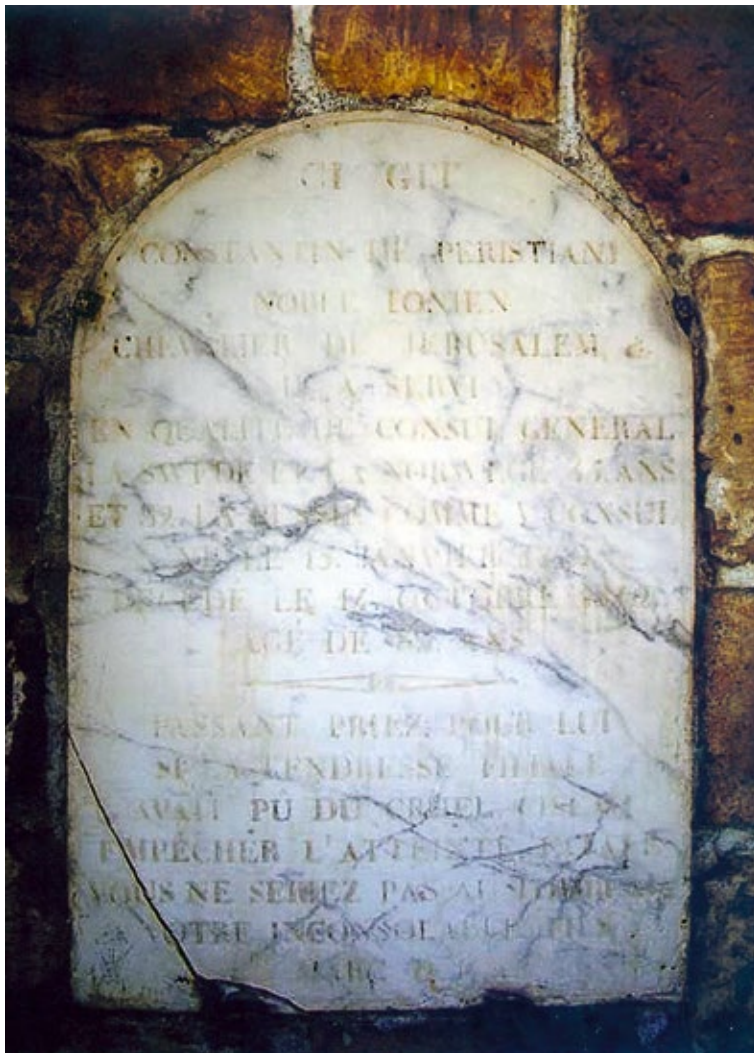 CI GIT
CONSTANTIN DE PERISTIANI
NOBLE IONIEN
CHEVALIER DE JERUSALEM, &
IL A SERVI
EN QUALITE DE CONSUL GENERAL
LA SWEDE ET LA NORWEGE ANS
ET 39. LA COMME V. CONSUL
NE LE 15. JANVIER
DECEDE LE OCTOBRE
AGÉ DE ANS
PASSANT PRIEZ POUR LUI
SI LA TENDRESSE FILIALE
AVAIT PÛ DU CRUEL CISEAU
EMPÊCHER L'ATTEINTE FATALE
VOUS NE SERIEZ PAS AU TOMBEAU
VOTRE INCONSOLABLE FILS